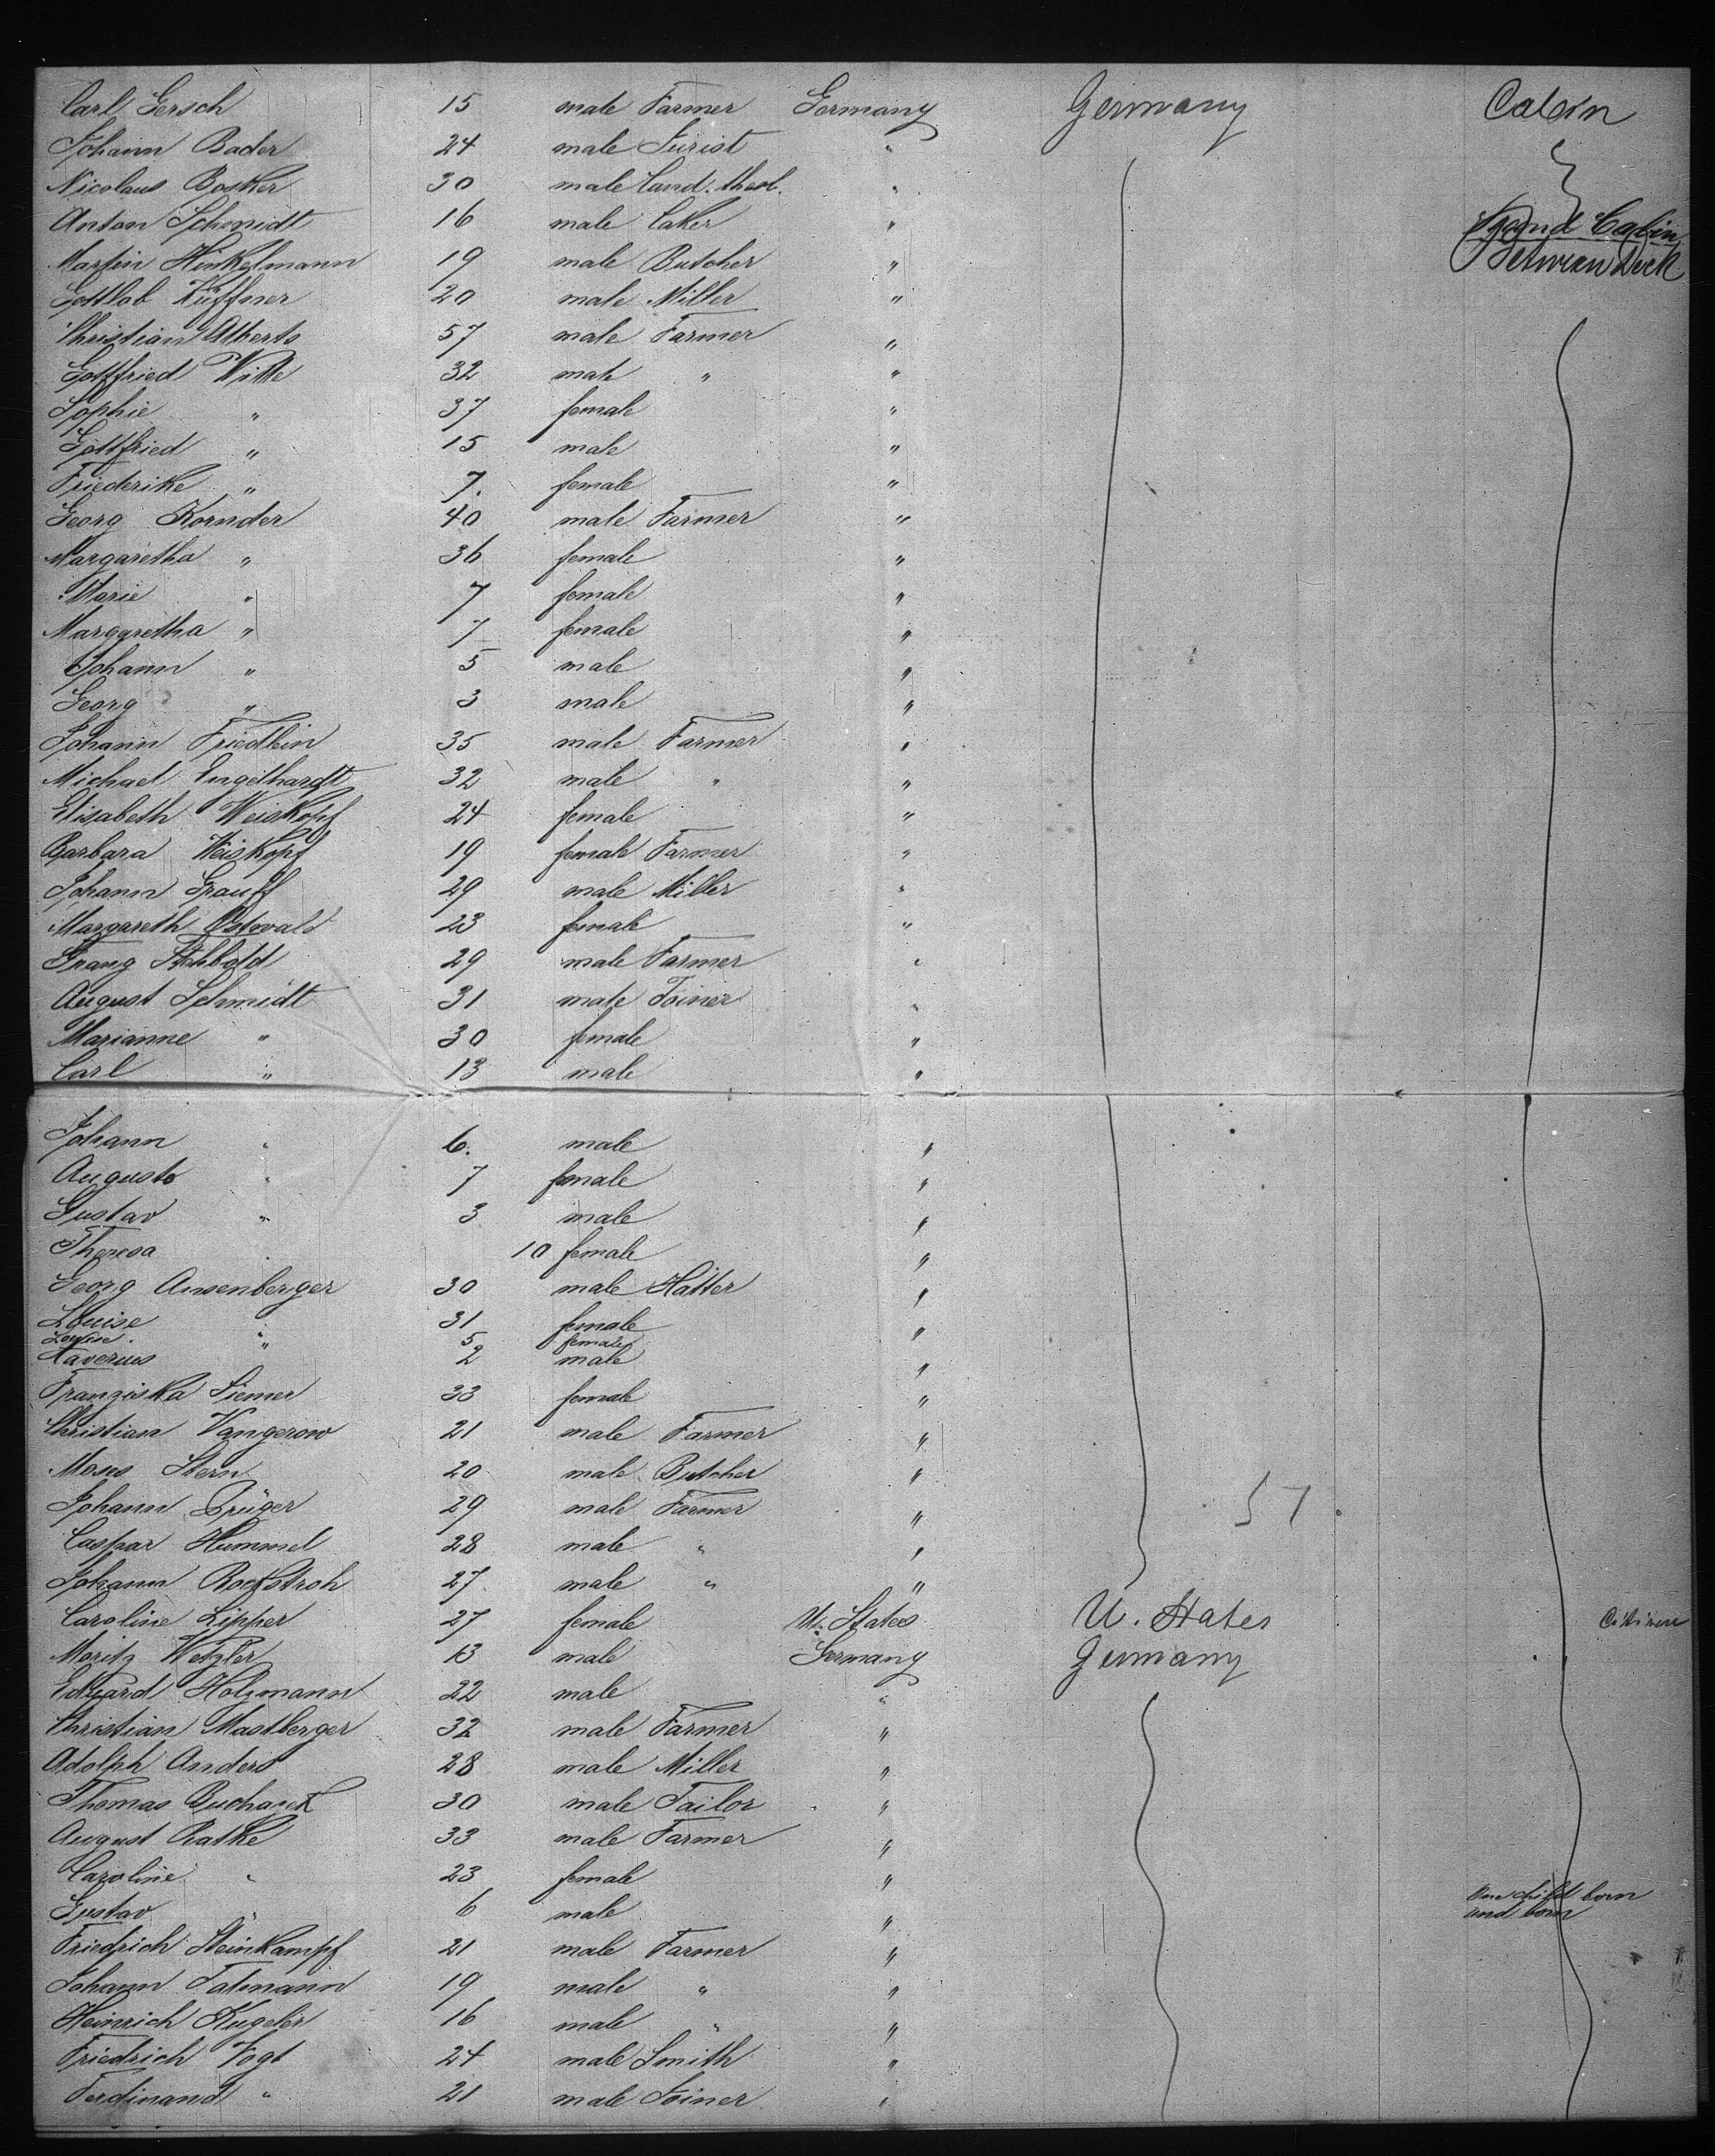 Carl Gersch 15 male Farmer Germany Germany Cabin
Johann Bader 24 male Jurist "
Nicolaus Bosker 30 male Cand. theol. "
Anton Schmidt 16 male Baker " Second Cabin
Martin Hinkelmann 19 male Butcher " Between Deck
Gottlob Küffner 20 male Miller "
Christian Alberts 57 male Farmer "
Gottfried Witte 32 male " "
Sophie " 37 female "
Gottfried " 15 male "
Friederike " 7. female "
Georg Kornder 40 male Farmer "
Margaretha " 36 female "
Marie " 7 female "
Margaretha " 7 female "
Johann " 5 male "
Georg " 3 male "
Johann Friedlein 35 male Farmer "
Michael Engelhardt 32 male " "
Elisabeth Weiskopf 24 female "
Barbara Weiskopf 19 female Farmer "
Johann Grauff 29 male Miller "
Margareth Ostwald 23 female "
Franz 29 male Farmer "
August Schmidt 31 male Joiner "
Marianne " 30 female "
Carl " 13 male "
Johann " 6. male "
Auguste " 7 female "
Gustav " 3 male "
Theresa 10 female "
Georg Ansenberger 30 male Hatter "
Louise " 31 female "
Louise " 5 female
Xaverius 2 male "
Franziska Siemer 33 female "
Christian Vangerow 21 male Farmer "
Moses Stern 20 male Butcher "
Johann Krüger 29 male Farmer " 57
Caspar Hummel 28 male " "
Johann Rockstroh 27 male " "
Caroline Lipper 27 female U. States U. States Citizen
Moritz Wetzler 13 male Germany Germany
Eduard Holzmann 22 male "
Christian Mastberger 32 male Farmer "
Adolph Anders 28 male Miller "
Thomas 30 male Tailor "
August Rathe 33 male Farmer "
Caroline " 23 female "
Gustav " 6 male " One child born
and born
Friedrich Steinkampf 21 male Farmer "
Johann Tatmann 19 male " "
Heinrich Kugeler 16 male " "
Friedrich Vogt 24 male Smith "
Ferdinand " 21 male Joiner "